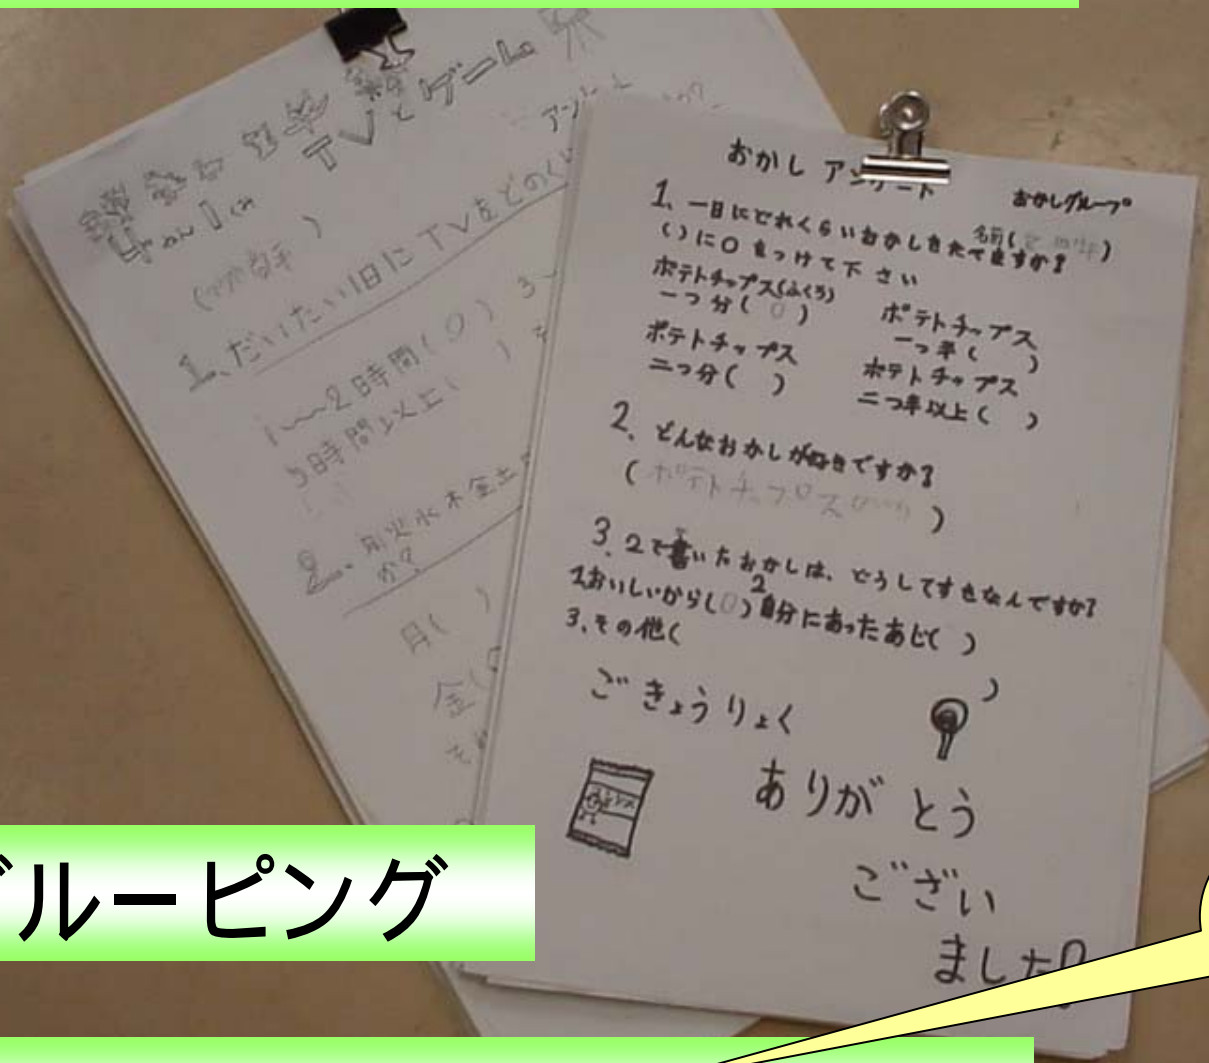 TVとゲーム
1、だいたい1日にTVをどのく
1〜2時間(〇) 3〜
5時間以上(
2、月火水木金土
か?
月( )
金(
おかし アンケート
おかしグループ
名前( )
1、一日にどれくらいおかしをたべますか?
()に〇をつけて下さい
ポテトチップス(ふくろ)
一つ分(〇)
ポテトチップス
一つ半( )
ポテトチップス
二つ分( )
ポテトチップス
二つ半以上( )
2、どんなおかしが好きですか?
(ポテトチップス )
3、2で書いたおかしは、どうしてすきなんですか?
1おいしいから(〇) 2自分にあったあじ( )
3、その他( )
ごきょうりょく
ありがとう
ござい
ました
グルーピング